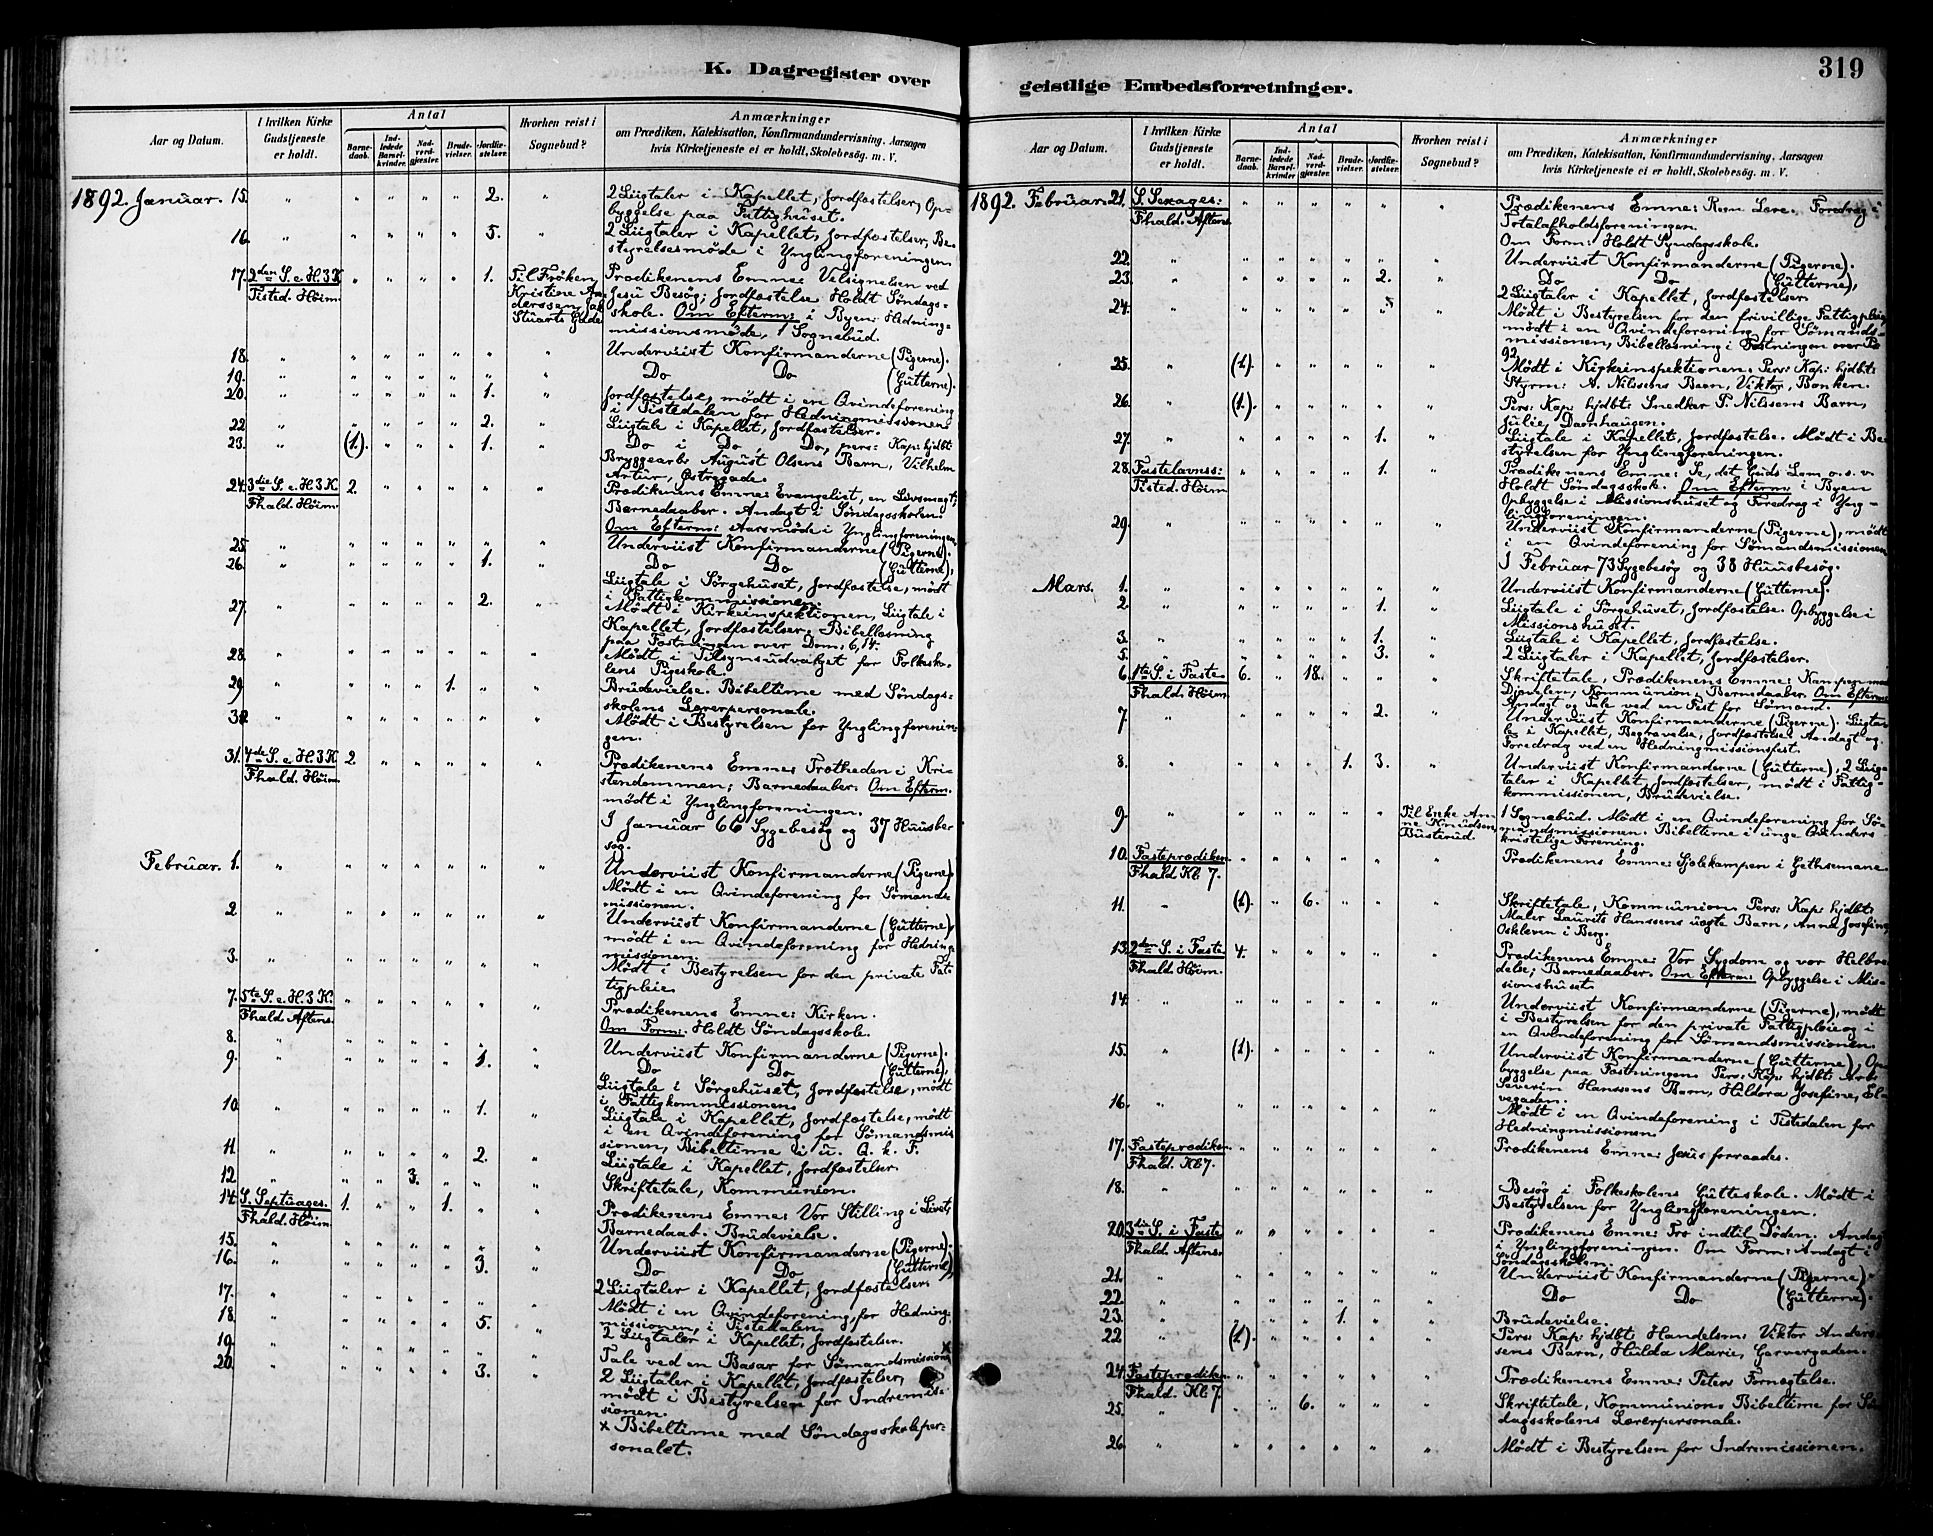 K. Dagregister over
Aar og Datum.
I hvilken Kirke Gudstjeneste er holdt.
Antal
Barnedaab.
Indledede Barselkvinder.
Nadverdgjæster.
Brudevielser.
Jordfæstelser.
Hvorhen reist i Sognebud?
Anmærkninger
om Prædiken, Katekisation, Konfirmandundervisning, Aarsagen
hvis Kirketjeneste ei er holdt, Skolebesøg. m. V.
1892. Januar. 15. " " " " " 2. " 2 Liigtaler i Kapellet, Jordfæstelser, Op-
byggelse paa Fattighuset.
16. " " " " " 5. " 2 Liigtaler i Kapellet, Jordfæstelser, Be-
styrelsesmöde i Ynglingforeningen
17. 2den S. e. H. 3 K. Tisted. Höim. " " " " 1. Til Fröken Prædikenens Emne: Velsignelsen ved
Kristiane An- Jesu Besøg; Jordfæstelse Holdt Söndags-
derssen, Jak. skole. Om Efterm: i Byen: Hednings-
Stuarts Gade missionsmöde, 1 Sognebud.
18. " " " " " " " Underviist Konfirmanderne (Pigerne).
19. " " " " " " " Do Do (Gutterne).
20. " " " " " 1. " Jordfæstelse, mödt i en Qvindeforening
i Tistedalen for Hedningmissionen
22 " " " " " 2. Liigtale i Kapellet, Jordfæstelser.
23. " (1). " " " 1. " Do i Do, Do, pers: Kap: hjdbt
Bryggearb. August Olsens Barn, Vilhelm
Artur, Østregade.
24. 3die S. e. H. 3 K. Fhald. Höim. 2. " " " " " Prædikenens Emne: Evangeliet, en Livsmagt;
Barnedaaber. Andagt i Söndagsskolen.
Om Efterm: Aarsmöde i Ynglingforeningen
25. " " " " " " " Underviist Konfirmanderne (Pigerne).
26. " " " " " 1. " Do Do (Gutterne),
Liigtale i Sörgehuset, Jordfæstelse, mödt
i Fattigkommissionen.
27. " " " " " 2. " Mödt i Kirkeinspektionen, Liigtale i
Kapellet, Jordfæstelser, Bibellæsning
paa Fæstningen over Dom. 6,14.
28. " " " " " " " Mödt i Tilsynsudvalget for Folkesko-
lens Pigeskole.
29 " " " " 1. " " Brudevielse. Bibeltime med Söndags-
skolens Lærerpersonale.
30 " " " " " " " Mödt i Bestyrelsen for Ynglingforenin-
gen.
31. 4de S. e. H. 3 K. Fhald. Höim. 2. " " " " " Prædikenens Emne: Trætheden i Kri-
stendommen; Barnedaaber. Om Efterm.
mödt i Ynglingforeningen.
I Januar 66 Sygebesög og 37 Huusbe-
søg.
Februar. 1. " " " " " " " Underviist Konfirmanderne (Pigerne)
Mödt i en Qvindeforening for Sömands-
missionen.
2. " " " " " " " Underviist Konfirmanderne (Gutterne)
mödt i en Qvindeforening for Hedning-
missionen.
3. " " " " " " " Mödt i Bestyrelsen for den private Fat-
tigpleie.
7. 5te S. e. H. 3 K. Fhald. Aftens. " " " " " " Prædikenens Emne: Kirken.
Om Form: Holdt Söndagsskole.
8. " " " " " " " Underviist Konfirmanderne (Pigerne).
9. " " " " " 1. " Do Do (Gutterne),
Liigtale i Sörgehuset, Jordfæstelse, mödt
i Fattigkommissionen
10. " " " " " 1. " Liigtale i Kapellet, Jordfæstelse, mödt
i en Qvindeforening for Sömandsmis-
sionen, Bibeltime i u. Q. k. F.
11. " " " " " 2. " Liigtale i Kapellet, Jordfæstelser.
12 " " " 3. " " " Skriftetale, Kommunion.
14. S. Septuages. Fhald. Höim. 1. " " 1. " " Prædikenens Emne: Vor Stilling i Livet;
Barnedaab. Brudevielse.
15. " " " " " " " Underviist Konfirmanderne (Pigerne).
16. " " " " " 3. " Do Do (Gutterne),
2 Liigtaler i Kapellet, Jordfæstelser
17. " " " " " " Mödt i en Qvindeforening for Hedning-
missionen, i Tistedalen
18. " " " " " 5. 2 Liigtaler i Kapellet, Jordfæstelser.
19. " " " " " " " Tale ved en Basar for Sömandsmission x
20. " " " " " 3. " 2 Liigtaler i Kapellet, Jordfæstelser,
mödt i Bestyrelsen for Indremis-
sionen.
x Bibeltime med Söndagsskoleper-
sonalet.
geistlige Embedsforretninger.
319
Aar og Datum.
I hvilken Kirke Gudstjeneste er holdt.
Antal
Barnedaab.
Indledede Barselkvinder.
Nadverdgjæster.
Brudevielser.
Jordfæstelser.
Hvorhen reist i Sognebud?
Anmærkninger
om Prædiken, Katekisation, Konfirmandundervisning, Aarsagen
hvis Kirketjeneste ei er holdt, Skolebesøg. m. V.
1892. Februar. 21. S. Sexages: Fhald. Aftens. " " " " " " Prædikenens Emne: Rom Lære. Foredrag i
Totalafholdsforeningen.
Om Form: Holdt Syndagsskole.
22. " " " " " " " Underviist Konfirmanderne (Pigerne).
23. " " " " " 2. " Do Do (Gutterne),
2 Liigtaler i Kapellet, Jordfæstelser
24. " " " " " " " Mödt i Bestyrelsen for den frivillige Fattigpleie,
mödt i en Qvindeforening for Sömands-
missionen, Bibellæsning i Fæstningen over Ps
92.
25. " (1). " " " " " Mödt i Kirkeinspektionen Pers: Kap: hjdbt:
Styrm: A. Nilssens Barn, Viktor, Banken.
26. " (1.) " " " " " Pers: Kap: hjdbt: Smedker P. Nilssens Barn,
Julie, Damhaugen.
27. " " " " " 1. " Liigtale i Kapellet, Jordfæstelse. Mödt i Be-
styrelsen for Ynglingforeningen.
28. Fastelavnss: Tisted. Höim " " " " 1. " Prædikenens Emne: Se, det Guds Lam o. s. v.
Holdt Söndagsskole: Om Efterm: i Byen
Opbyggelse i Missionshuset og Foredrag i Yng-
lingforeningen.
29. " " " " " " " Underviist Konfirmanderne (Pigerne), mödt
i en Qvindeforening for Sömandsmissionen
I Februar 73 Sygebesög og 38 Huusbesög.
Mars. 1. " " " " " " " Underviist Konfirmanderne (Gutterne).
2. " " " " " 1. " Liigtale i Sörgehuset, Jordfæstelse. Opbyggelse i
Missionshuset.
3. " " " " " 1. " Liigtale i Kapellet, Jordfæstelse.
5. " " " " " 3. " 2 Liigtaler i Kapellet, Jordfæstelser.
6. 1ste S. i Faste Fhald. Höim 6. " 18. " " " Skriftetale, Prædikenens Emne: Kampen med
Djævelen, Kommunion: Barnedaaber. Om Efterm:
Andagt og Tale ved en Fest for Sömænd.
7. " " " " " 2. " Underviist Konfirmanderne (Pigerne). Liigta-
le i Kapellet, Begravelse, Jordfæstelse Andagt og
Foredrag ved en Hedningmissionsfest.
8. " " " " 1. 3. " Underviist Konfirmanderne (Gutterne), 2 Liig-
taler i Kapellet, Jordfæstelser, mödt i Fattig-
kommissionen, Brudevielse.
9. " " " " " " Til Enke An- 1 Sognebud. Mödt i en Qvindeforening for Sö-
ne Knudsen, mandsmissionen. Bibeltime i unge Qvinders
Busterud. kristelige Forening.
10. Fasteprædiken Fhald Kl. 7. " " " " " " Prædikenens Emne: Sjælekampen i Gethsemane.
11. " (1). " 6. " " " Skriftetale, Kommunion. Pers: Kap: hjdbt:
Maler Laurits Hanssens uægte Barn, Anna Josefine,
Oskleven i Berg.
13. 2den S. i Faste Fhald. Höim. 4. " " " " " Prædikenens Emne: Vor Sygdom og vor Helbre-
delse; Barnedaaber. Om Efterm: Opbyggelse i Mis-
sionshuset
14. " " " " " " " Underviist Konfirmanderne (Pigerne), mödt
i Bestyrelsen for den private Fattigpleie og i
en Qvindeforening for Sömandsmissionen.
15. " (1). " " " " " Underviist Konfirmanderne (Gutterne), Op-
byggelse paa Fæstningen. Pers: Kap: hjdbt: Arb:
Severin Hanssens Barn, Hildora Josefine, El-
vegaden.
16. " " " " " " " Mödt i en Qvindeforening i Tistedalen for
Hedningmissionen
17. Fasteprædiken Fhald. Kl 7. " " " " " " Prædikenens Emne: Jesus forraades.
18. " " " " " " " Besög i Folkeskolens Gutteskole. Mödt i
Bestyrelsen for Ynglingforeningen.
20. 3die S. i Faste Fhald Aftens. " " " " " " Prædikenens Emne: Tro indtil Döden. Andagt
i Ynglingforeningen. Om Form: Andagt i
Söndagsskolen.
21. " " " " " " " Underviist Konfirmanderne (Pigerne)
22. " " " " " " " Do Do (Gutterne).
23. " " " " 1. " " Brudevielse.
22 " (1) " " " " " Pers: Kap: hjdbt: Handelsm: Viktor Anders-
sens Barn, Hulda Marie, Garvergaden.
24. Fasteprædiken Fhald. Kl: 7 " " " " " " Prædikenens Emne: Peters Fornægtelse.
25. " " " 6. " " " Skriftetale, Kommunion. Bibeltime for Sön-
dagsskolens Lærerpersonale.
26. " " " " " " " Mödt i Bestyrelsen for Indremissionen.